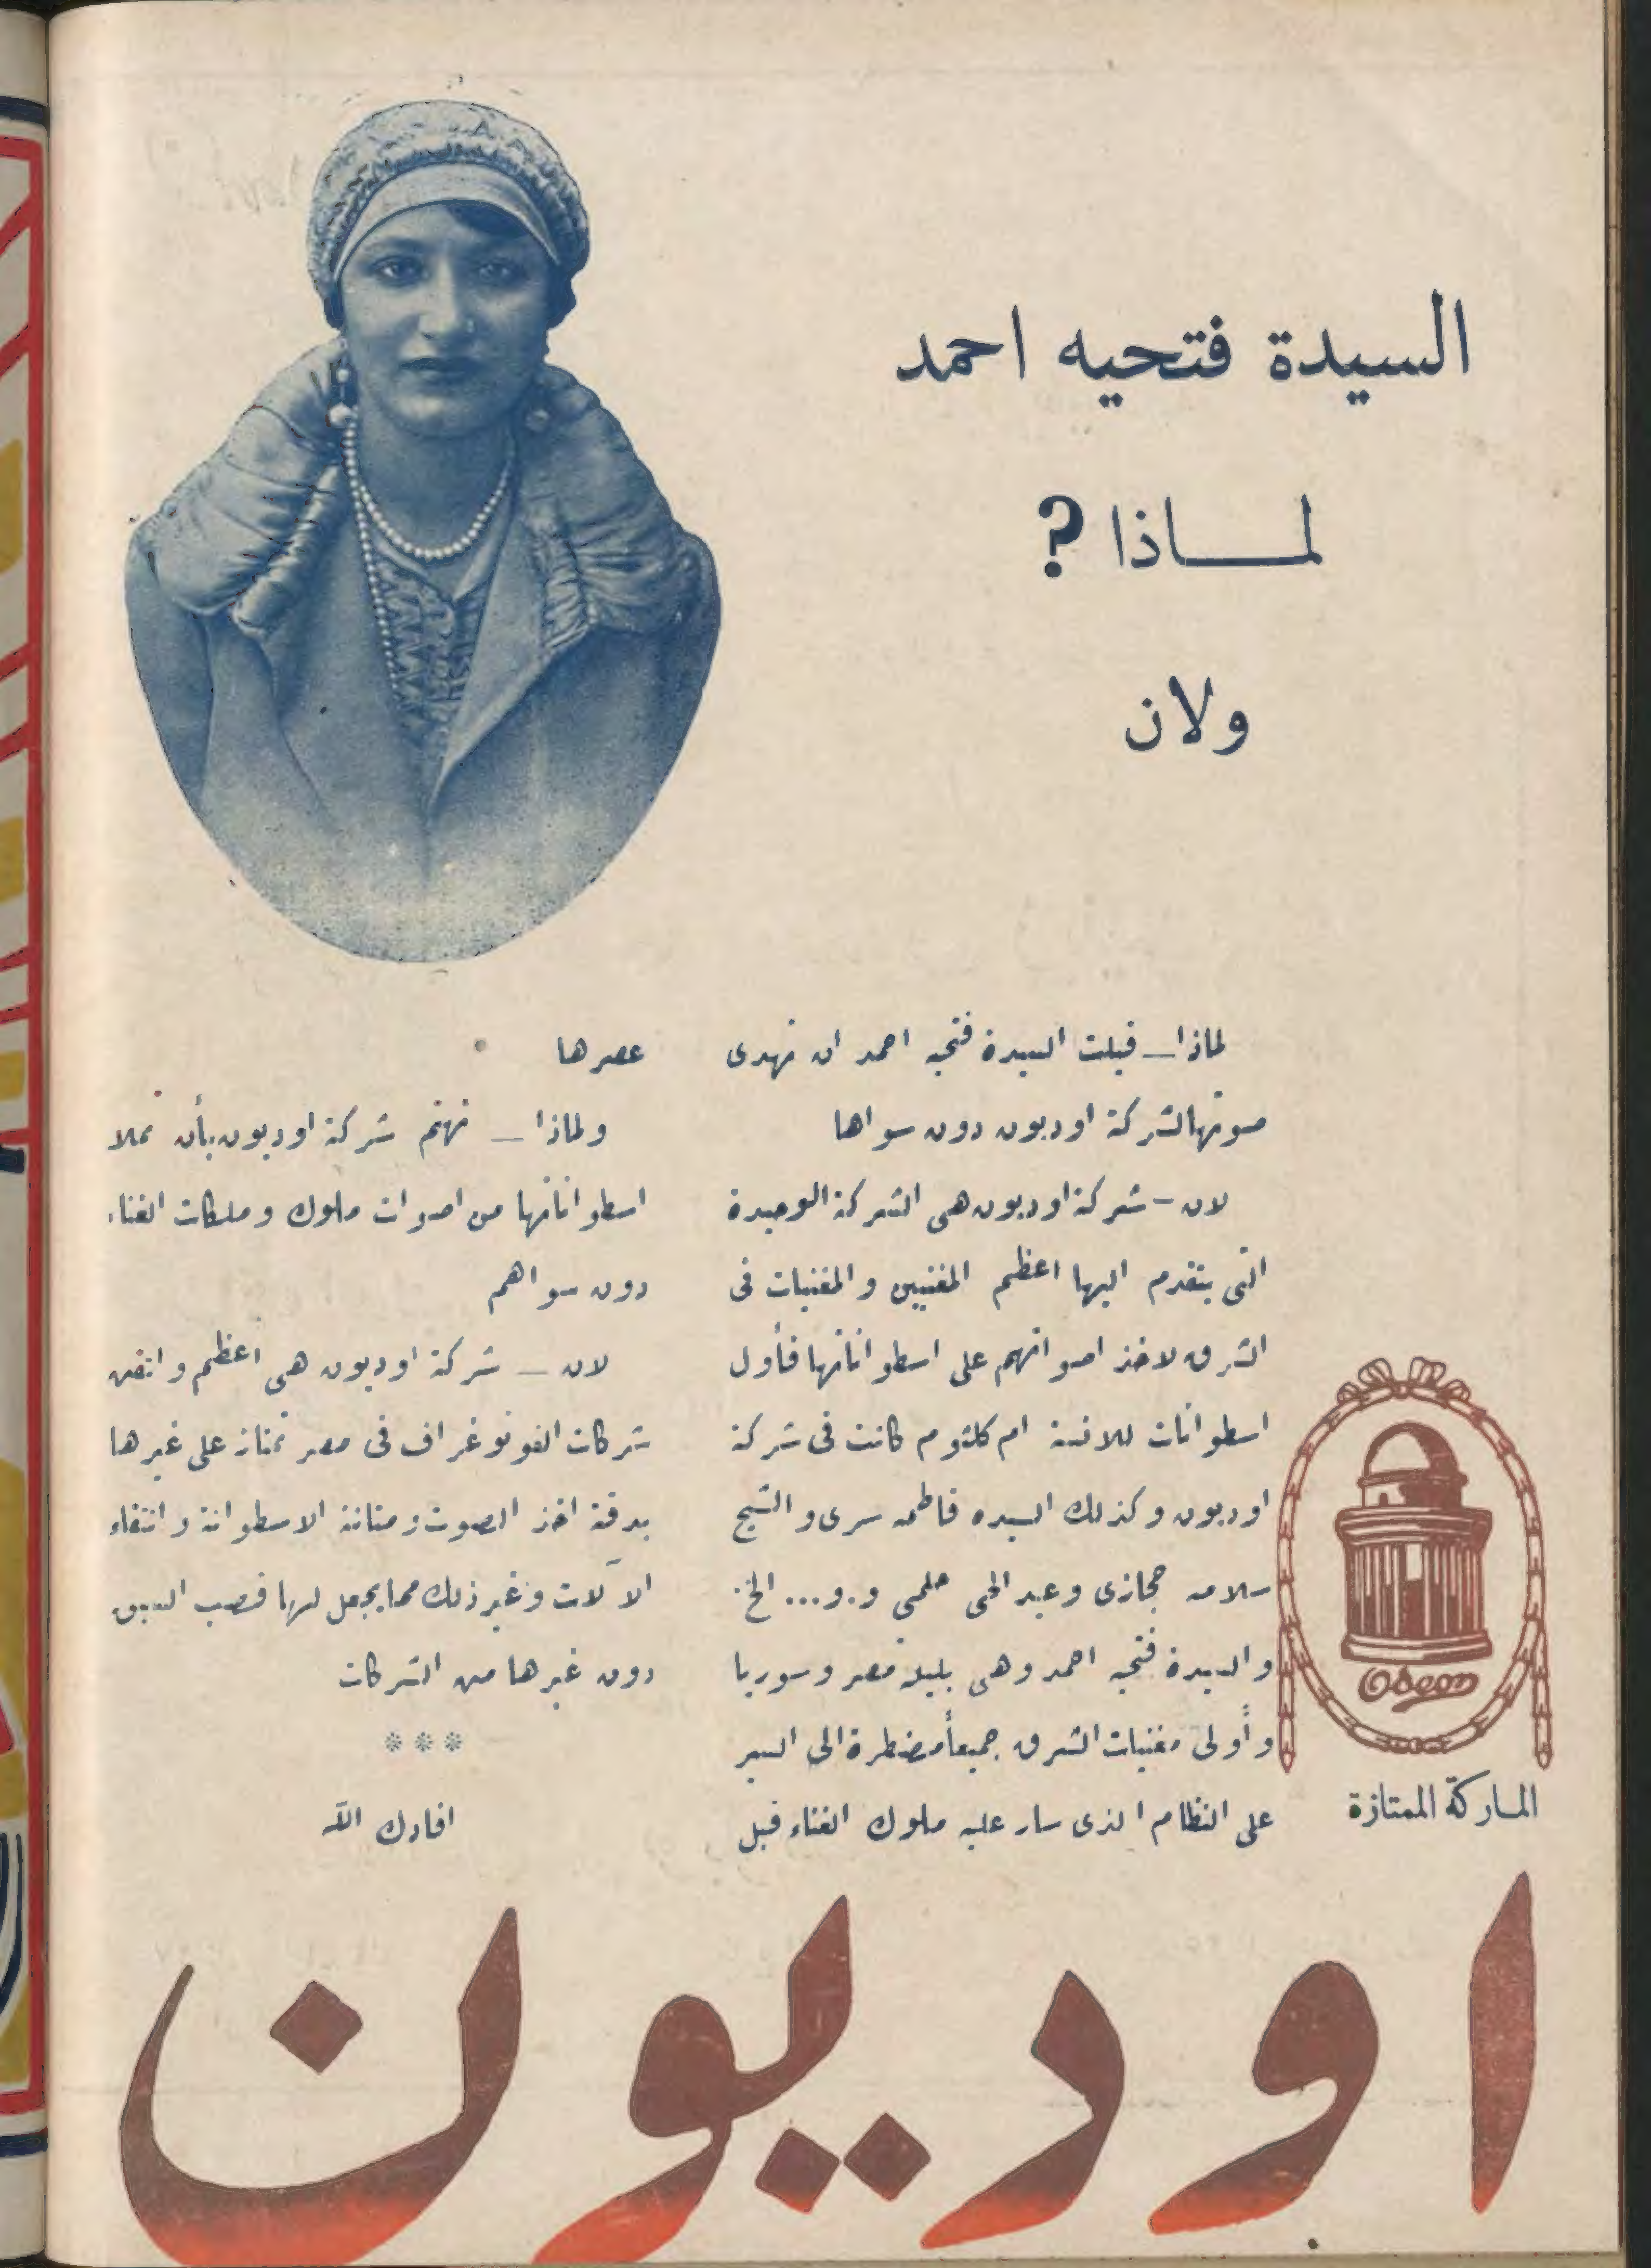 السيدة فتحيه احمد
لماذا ?
ولان
لماذا — قبلت السيدة فتحيه احمد ان تهدى
صوتها لشركة اوديون دون سواها
لان - شركة اوديون هى الشركة الوحيدة
التى يتقدم اليها اعظم المغنيين والمغنيات فى
الشرق لاخذ اصواتهم على اسطواناتها فأول
اسطوانات للانسة ام كلثوم كانت فى شركة
اوديون وكذلك السيده فاطمه سرى والشيخ
سلامه حجازى وعبد الحى حلمى و.و... الخ.
والسيدة فتحيه احمد وهى بلبلة مصر وسوريا
وأولى مغنيات الشرق جميعاً مضطرة الى السير
على النظام الذى سار عليه ملوك الغناء قبل
عصرها
ولماذا — تهتم شركة اوديون بأن تملا
اسطواناتها من اصوات ملوك وملكات الغناء
دون سواهم
لان — شركة اوديون هى اعظم واتقن
شركات الفونوغراف فى مصر تمتاز على غيرها
بدقة اخذ الصوت ومتانة الاسطوانة وانتقاء
الآلات وغير ذلك مما يجعل لها قصب السبق
دون غيرها من الشركات
***
افادك الله
Odeon
الماركة الممتازة
اوديون